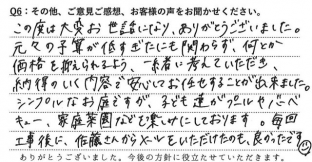 Q6：その他、ご意見ご感想、お客様の声をお聞かせください。
この度は大変お世話になり、ありがとうございました。
元々の予算が低すぎたにも関わらず、何とか
価格を抑えられるよう、一緒に考えていただき、
納得のいく内容で安心してお任せすることが出来ました。
シンプルなお庭ですが、子ども達がプールやバーベ
キュー、家庭菜園などを楽しみにしております。毎回
工事後に、佐藤さんからメールをいただけたのも、良かったです
ありがとうございました。今後の方針に役立たせていただきます。